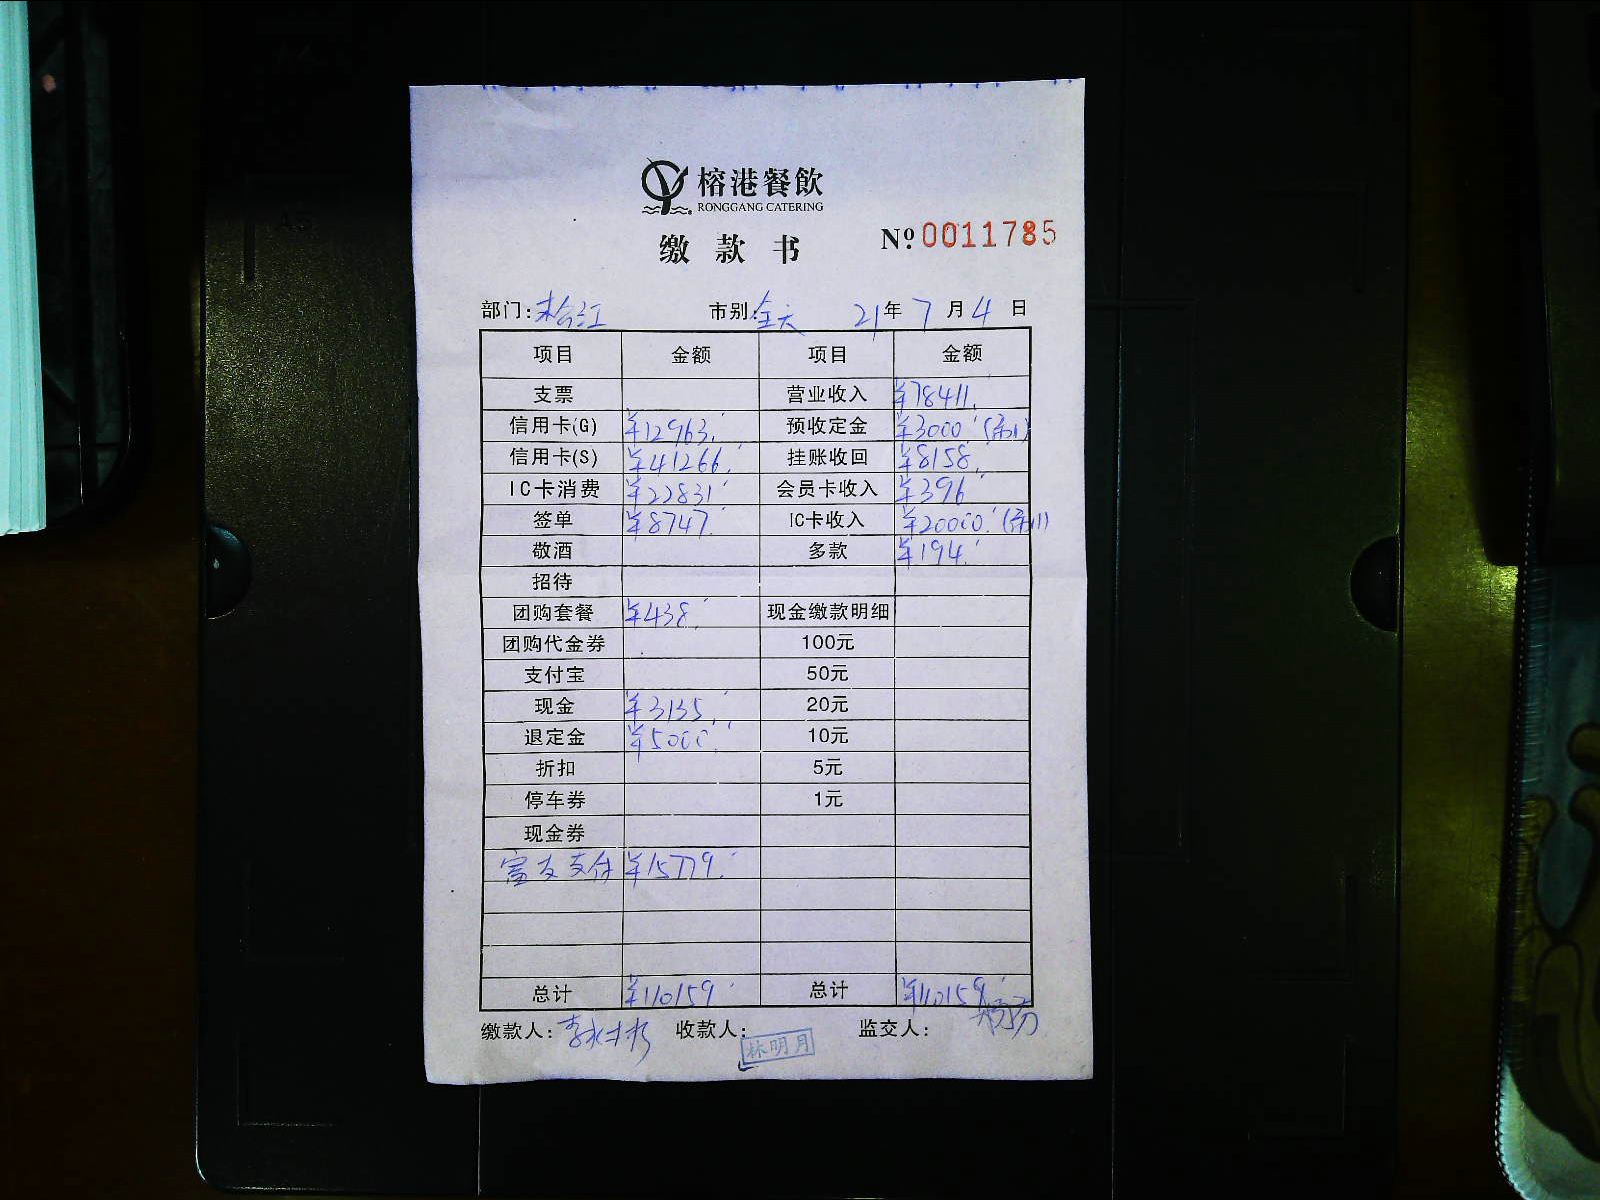 榕港餐飲
RONGGANG CATERING
缴款书 №0011785
部门:松江 市别:全天 21年7月4日
项目 金额 项目 金额
支票 营业收入 ¥78411.
信用卡(G) ¥12963. 预收定金 ¥3000
信用卡(S) ¥41266. 挂账收回 ¥8158.
IC卡消费 ¥22831 会员卡收入 ¥396
签单 ¥8747. IC卡收入 ¥20000.
敬酒 多款 ¥194.
招待
团购套餐 ¥438. 现金缴款明细
团购代金券 100元
支付宝 50元
现金 ¥3135. 20元
退定金 ¥5000. 10元
折扣 5元
停车券 1元
现金券
富友支付 ¥15779.
总计 ¥110159 总计 ¥110159
缴款人: 收款人: 林明月 监交人: